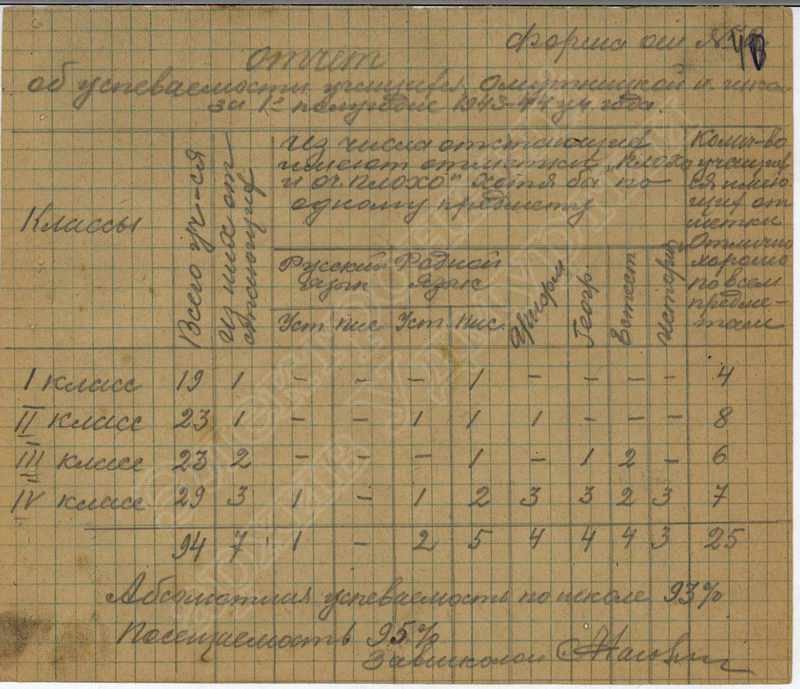 Форма ош №
отчет
об успеваемости учащихся Омутницкой н. школы
за 1ое полугодие 1943-44 уч. года.
Классы
Всего уч-ся
Из них отстающие
Из числа отстающих
имеют отметки "плохо
и оч. плохо" хотя бы по
одному предмету
Русский язык
Родной язык
Уст. Пис Уст. Пис.
Арифм
Геогр
Естест
История
Колич-во
учащих
ся имею
щих от
метки
Отлично
хорошо
по всем
предме-
там
I класс 19 1 - - - 1 - - - - 4
II класс 23 1 - - 1 1 1 - - - 8
III класс 23 2 - - - 1 - 1 2 - 6
IV класс 29 3 1 - 1 2 3 3 2 3 7
94 7 1 - 2 5 4 4 4 3 25
Абсолютная успеваемость по школе 93%
Посещаемость 95%
Завшколой